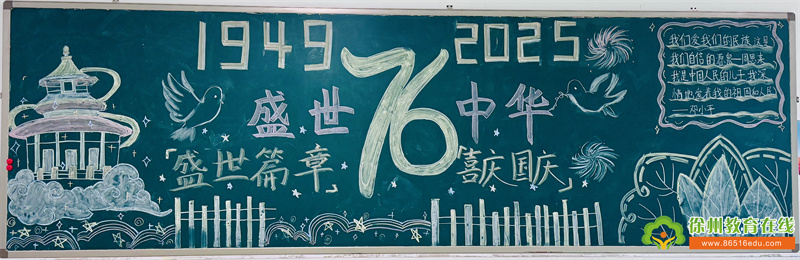 1949
2025
76
盛世
中华
「盛世篇章」
「喜庆国庆」
我们爱我们的民族,这是
我们自信的源泉—周恩来
我是中国人民的儿子,我深
情地爱着我的祖国和人民
——邓小平
徐州教育在线
www.86516edu.com